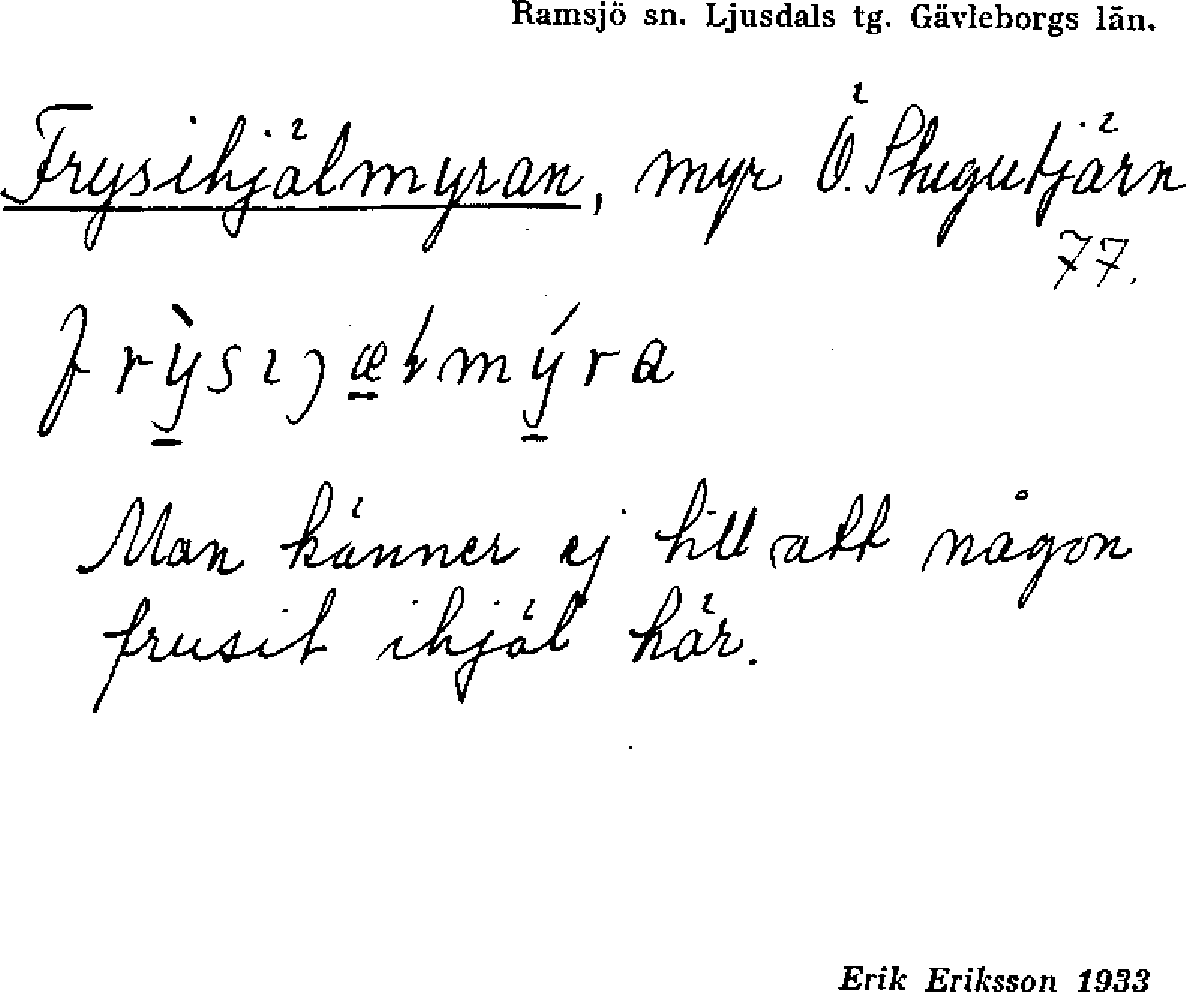 Ramsjö sn. Ljusdals tg. Gävleborgs län.
Frysihjälmyran, myr Ö. Flugutjärn
77.
frỳsıjæłmýra
Man känner ej till att någon
frusit ihjäl här.
Erik Eriksson 1933